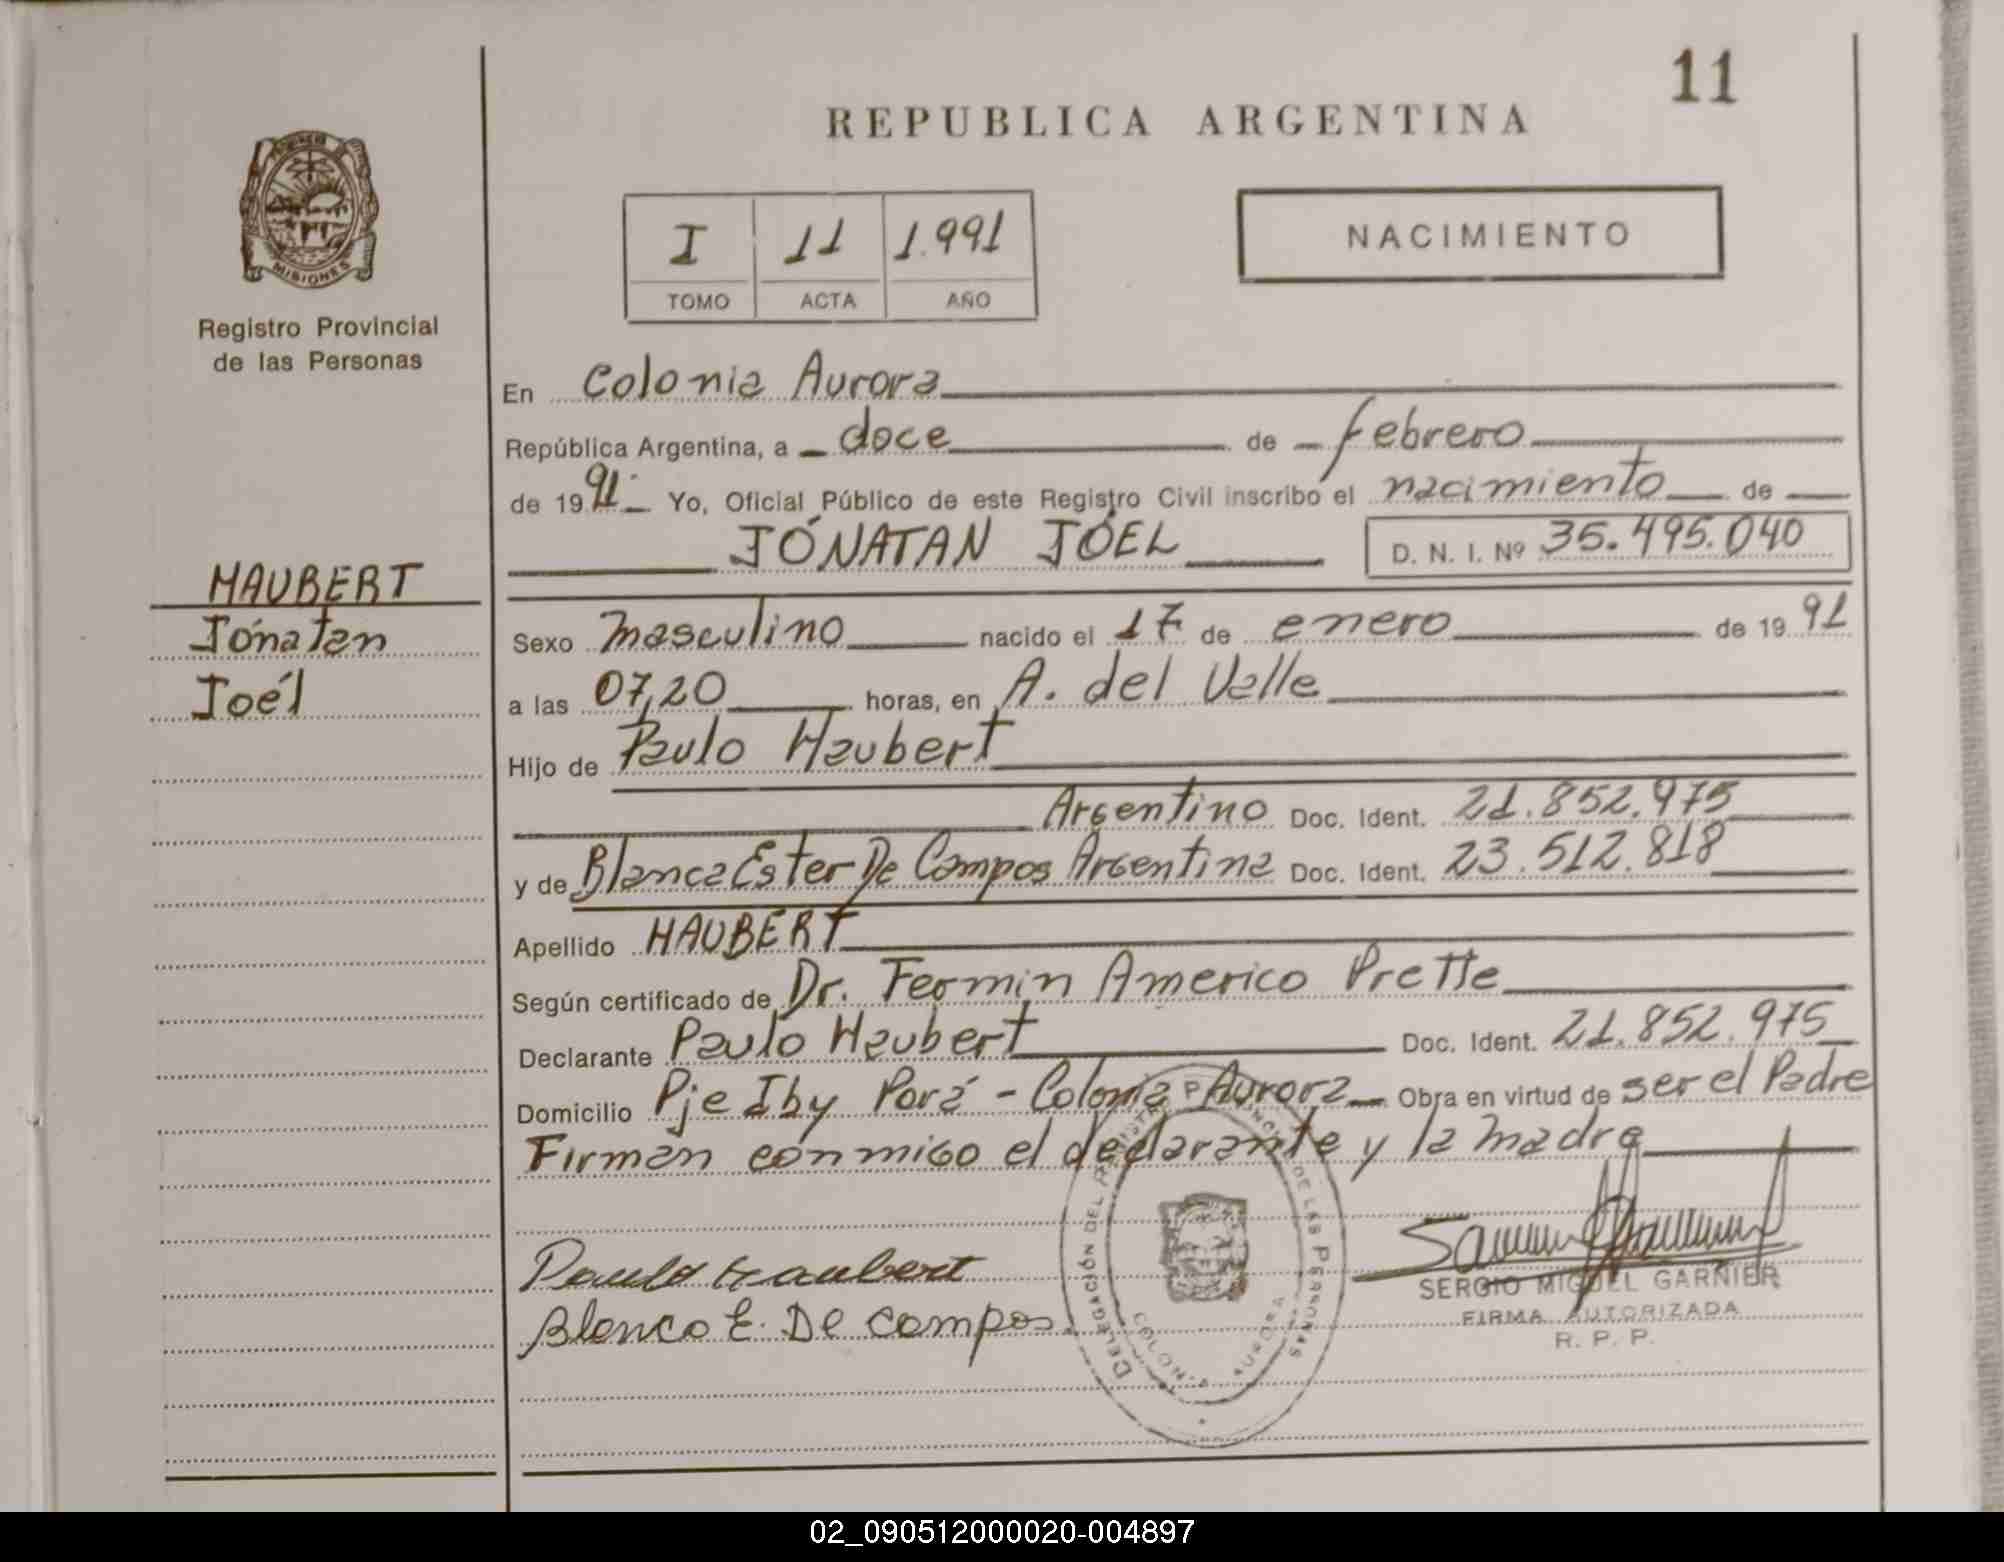 11
REPUBLICA ARGENTINA
MISIONES
Registro Provincial
de las Personas
I 11 1.991
TOMO ACTA AÑO
NACIMIENTO
En Colonia Aurora
República Argentina, a doce de febrero
de 1991 Yo, Oficial Público de este Registro Civil inscribo el nacimiento de
JÓNATAN JOÉL D. N. I. Nº 35.495.040
HAUBERT
Jónatan
Joél
Sexo masculino nacido el 17 de enero de 1991
a las 07,20 horas, en A. del Valle
Hijo de Paulo Haubert
Argentino Doc. Ident. 21.852.975
y de Blanca Ester De Campos Argentina Doc. Ident. 23.512.818
Apellido HAUBERT
Según certificado de Dr. Fermin Americo Prette
Declarante Paulo Haubert Doc. Ident. 21.852.975
Domicilio Pje Iby Porá - Colonia Aurora Obra en virtud de ser el Padre
Firman conmigo el declarante y la madre
Paulo Haubert
Blanca E. De Campos
DELEGACIÓN DEL DE LAS PERSONAS
COLONIA AURORA
SERGIO MIGUEL GARNIER
FIRMA AUTORIZADA
R. P. P.
02_090512000020-004897